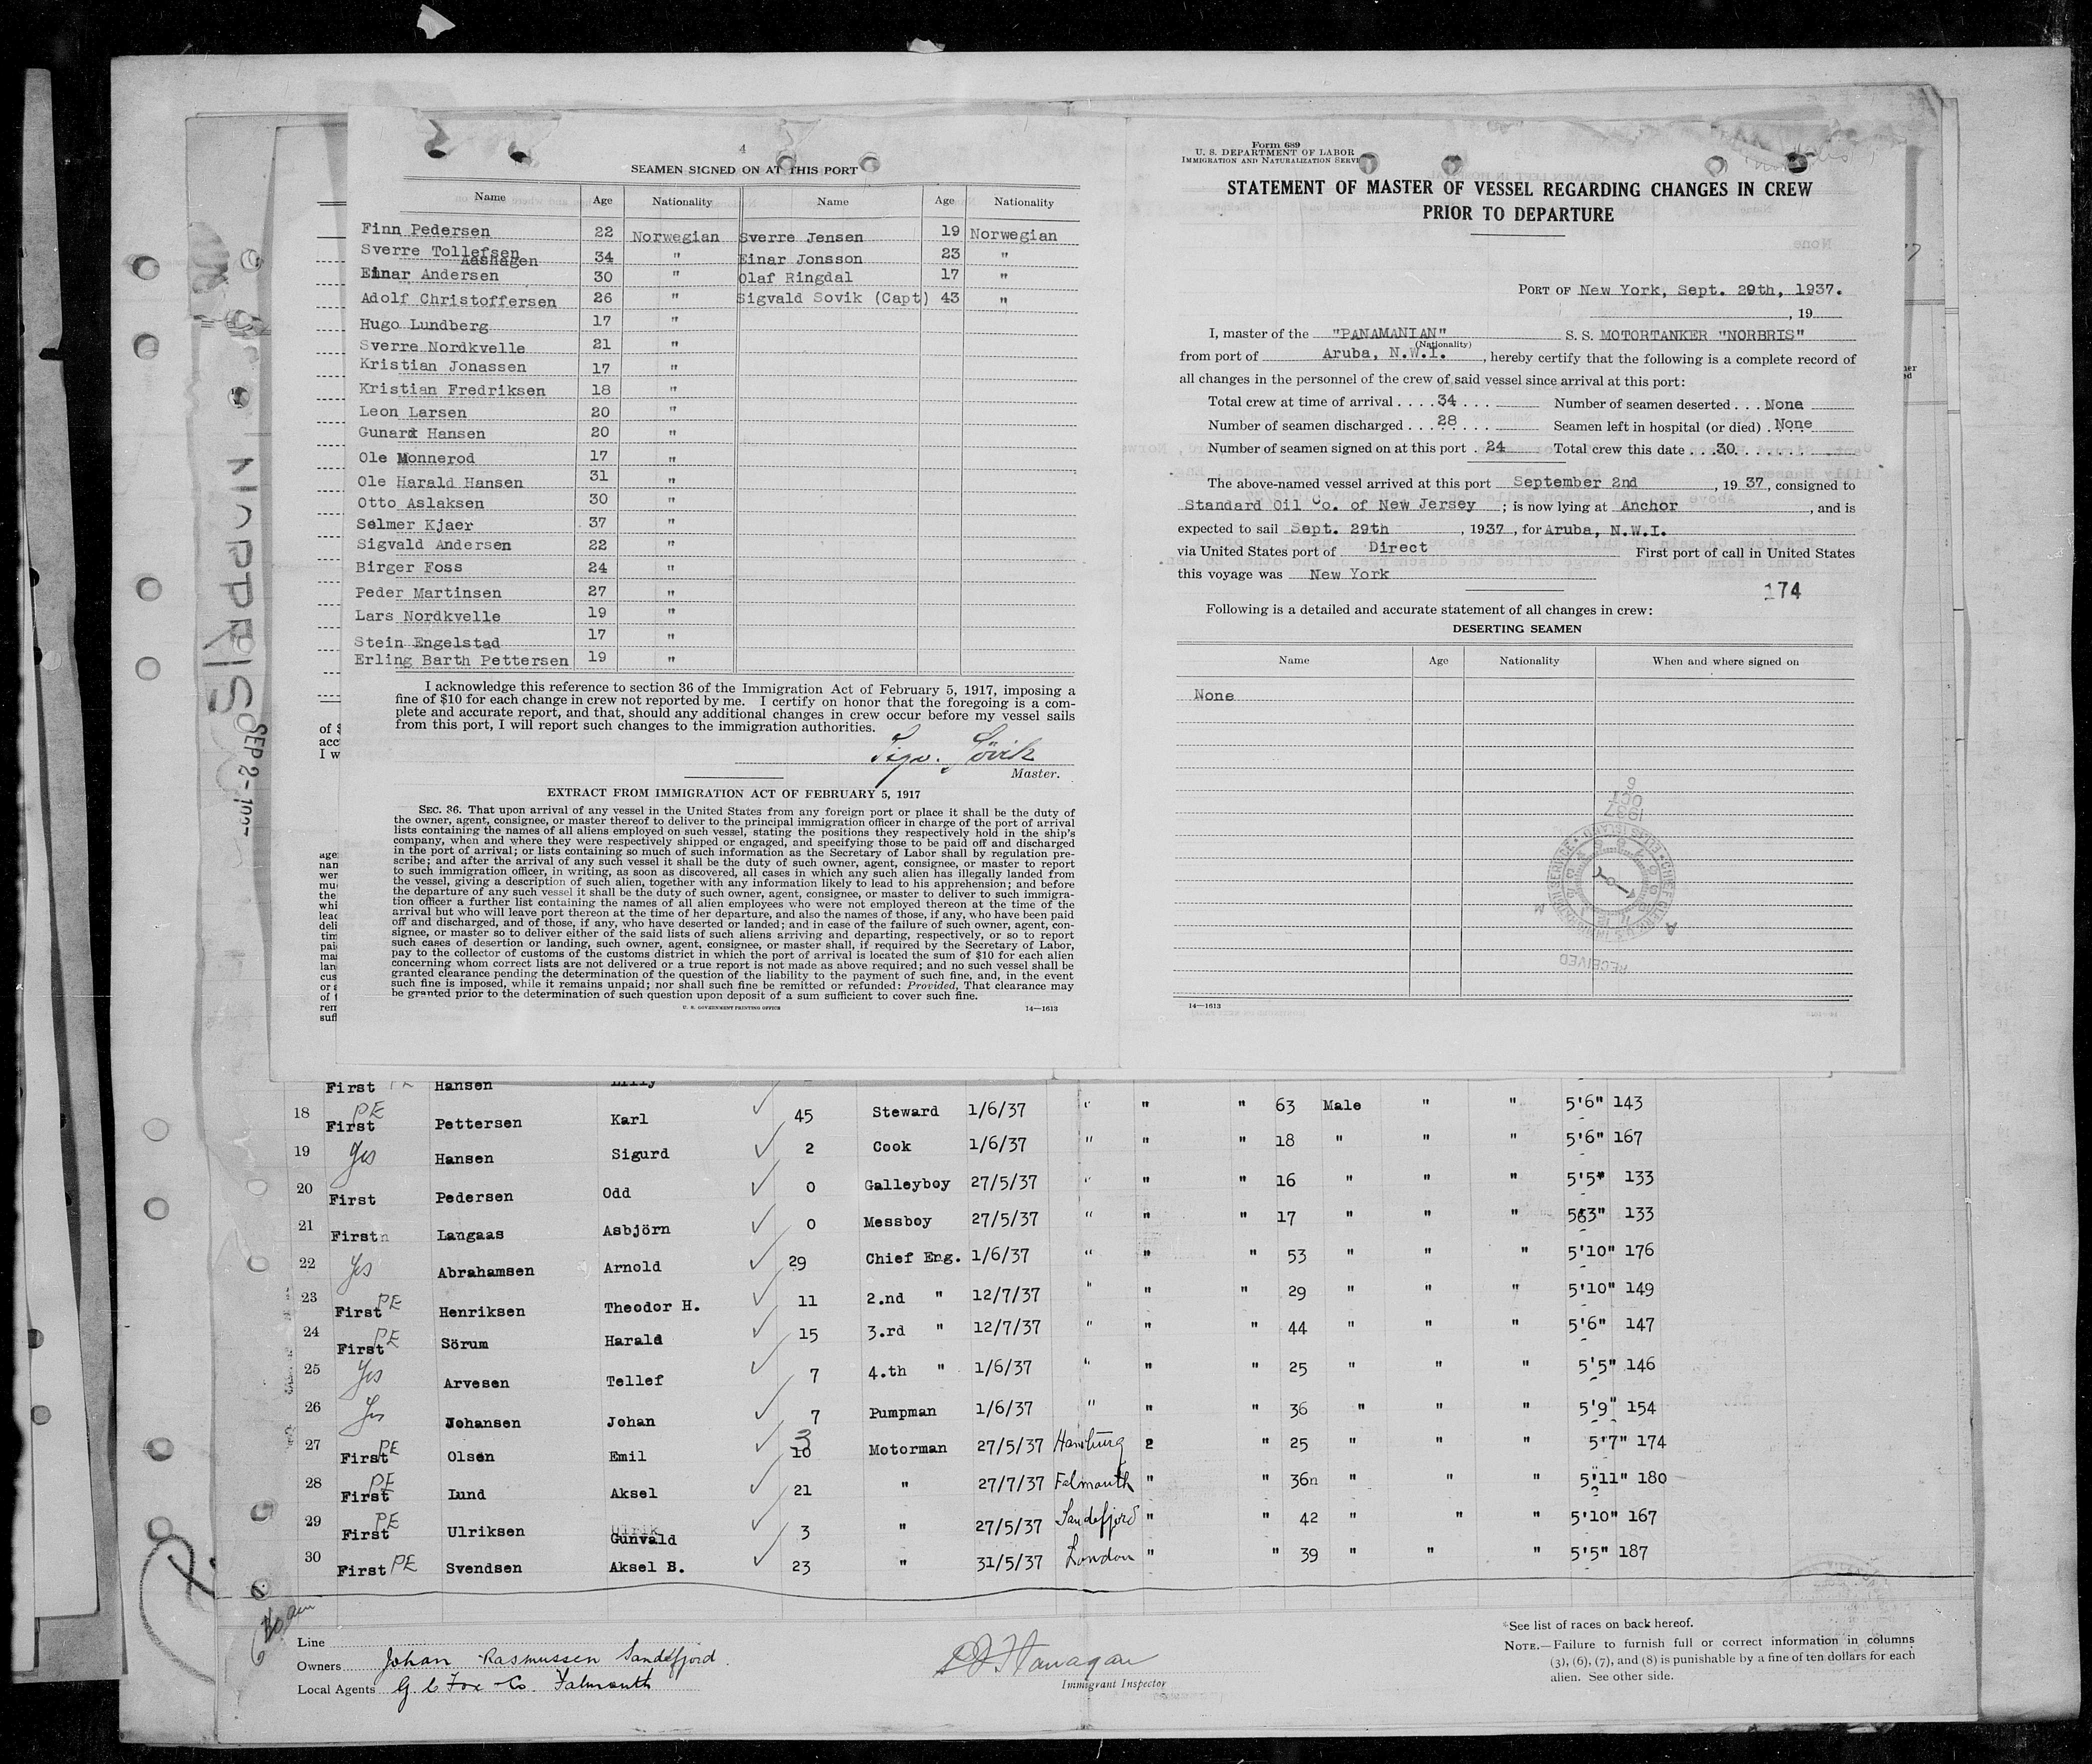 4
SEAMEN SIGNED ON AT THIS PORT
Name Age Nationality Name Age Nationality
Finn Pedersen 22 Norwegian Sverre Jensen 19 Norwegian
Sverre Tollefsen Aashagen 34 " Einar Jonsson 23 "
Einar Andersen 30 " Olaf Ringdal 17 "
Adolf Christoffersen 26 " Sigvald Sovik (Capt) 43 "
Hugo Lundberg 17 "
Sverre Nordkvelle 21 "
Kristian Jonassen 17 "
Kristian Fredriksen 18 "
Leon Larsen 20 "
Gunard Hansen 20 "
Ole Monnerod 17 "
Ole Harald Hansen 31 "
Otto Aslaksen 30 "
Selmer Kjaer 37 "
Sigvald Andersen 22 "
Birger Foss 24 "
Peder Martinsen 27 "
Lars Nordkvelle 19 "
Stein Engelstad 17 "
Erling Barth Pettersen 19 "
I acknowledge this reference to section 36 of the Immigration Act of February 5, 1917, imposing a
fine of $10 for each change in crew not reported by me. I certify on honor that the foregoing is a com-
plete and accurate report, and that, should any additional changes in crew occur before my vessel sails
from this port, I will report such changes to the immigration authorities.
Sigv. Sövik
Master.
EXTRACT FROM IMMIGRATION ACT OF FEBRUARY 5, 1917
SEC. 36. That upon arrival of any vessel in the United States from any foreign port or place it shall be the duty of
the owner, agent, consignee, or master thereof to deliver to the principal immigration officer in charge of the port of arrival
lists containing the names of all aliens employed on such vessel, stating the positions they respectively hold in the ship's
company, when and where they were respectively shipped or engaged, and specifying those to be paid off and discharged
in the port of arrival; or lists containing so much of such information as the Secretary of Labor shall by regulation pre-
scribe; and after the arrival of any such vessel it shall be the duty of such owner, agent, consignee, or master to report
to such immigration officer, in writing, as soon as discovered, all cases in which any such alien has illegally landed from
the vessel, giving a description of such alien, together with any information likely to lead to his apprehension; and before
the departure of any such vessel it shall be the duty of such owner, agent, consignee, or master to deliver to such immigra-
tion officer a further list containing the names of all alien employees who were not employed thereon at the time of the
arrival but who will leave port thereon at the time of her departure, and also the names of those, if any, who have been paid
off and discharged, and of those, if any, who have deserted or landed; and in case of the failure of such owner, agent, con-
signee, or master so to deliver either of the said lists of such aliens arriving and departing, respectively, or so to report
such cases of desertion or landing, such owner, agent, consignee, or master shall, if required by the Secretary of Labor,
pay to the collector of customs of the customs district in which the port of arrival is located the sum of $10 for each alien
concerning whom correct lists are not delivered or a true report is not made as above required; and no such vessel shall be
granted clearance pending the determination of the question of the liability to the payment of such fine, and, in the event
such fine is imposed, while it remains unpaid; nor shall such fine be remitted or refunded: Provided, That clearance may
be granted prior to the determination of such question upon deposit of a sum sufficient to cover such fine.
U. S. GOVERNMENT PRINTING OFFICE 14—1613
Form 689
U. S. DEPARTMENT OF LABOR
IMMIGRATION AND NATURALIZATION SERVI
STATEMENT OF MASTER OF VESSEL REGARDING CHANGES IN CREW
PRIOR TO DEPARTURE
PORT OF New York, Sept. 29th, 1937.
, 19
I, master of the "PANAMANIAN" S. S. MOTORTANKER "NORBRIS"
(Nationality)
from port of Aruba, N.W.I. , hereby certify that the following is a complete record of
all changes in the personnel of the crew of said vessel since arrival at this port:
Total crew at time of arrival . . . . 34 . . . Number of seamen deserted . . . None
Number of seamen discharged . . . 28 . . . Seamen left in hospital (or died) . None
Number of seamen signed on at this port . 24 Total crew this date . . . 30
The above-named vessel arrived at this port September 2nd , 1937, consigned to
Standard Oil Co. of New Jersey ; is now lying at Anchor , and is
expected to sail Sept. 29th , 1937, for Aruba, N.W.I.
via United States port of Direct First port of call in United States
this voyage was New York
174
Following is a detailed and accurate statement of all changes in crew:
DESERTING SEAMEN
Name Age Nationality When and where signed on
None
14—1613
RECEIVED
First Hansen Lilly
18 First PE Pettersen Karl 45 Steward 1/6/37 " " " 63 Male " " 5'6" 143
19 Yes Hansen Sigurd 2 Cook 1/6/37 " " " 18 " " " 5'6" 167
20 First Pedersen Odd 0 Galleyboy 27/5/37 " " " 16 " " " 5'5" 133
21 First Langaas Asbjörn 0 Messboy 27/5/37 " " " 17 " " " 5'3" 133
22 Yes Abrahamsen Arnold 29 Chief Eng. 1/6/37 " " " 53 " " " 5'10" 176
23 First PE Henriksen Theodor H. 11 2.nd " 12/7/37 " " " 29 " " " 5'10" 149
24 First PE Sörum Harald 15 3.rd " 12/7/37 " " " 44 " " " 5'6" 147
25 Yes Arvesen Tellef 7 4.th " 1/6/37 " " " 25 " " " 5'5" 146
26 Yes Johansen Johan 7 Pumpman 1/6/37 " " " 36 " " " 5'9" 154
27 First PE Olsen Emil 3 10 Motorman 27/5/37 Hamburg " " 25 " " " 5'7" 174
28 First PE Lund Aksel 21 " 27/7/37 Falmouth " " 36 " " " 5'11" 180
29 First PE Ulriksen Gunvald 3 " 27/5/37 Sandefjord " " 42 " " " 5'10" 167
30 First PE Svendsen Aksel B. 23 " 31/5/37 London " " 39 " " " 5'5" 187
Line
Owners Johan Rasmussen Sandefjord.
Local Agents G C Fox Co. Falmouth
Flanagan
Immigrant Inspector
*See list of races on back hereof.
NOTE.—Failure to furnish full or correct information in columns
(3), (6), (7), and (8) is punishable by a fine of ten dollars for each
alien. See other side.
SEP 2-